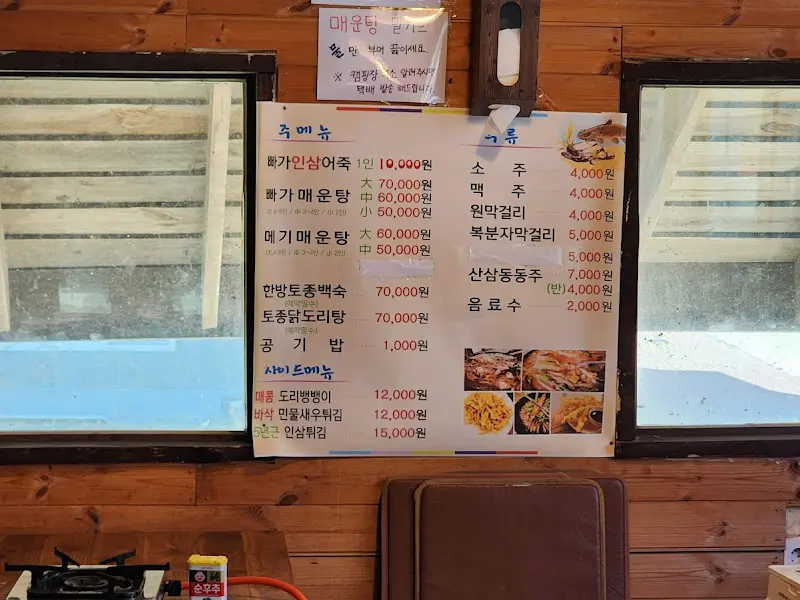 매운탕
물만 부어 끓이세요
※ 캠핑장
택배 발송 해드립니다.
주메뉴
빠가인삼어죽 1인 10,000원
빠가매운탕 大 70,000원
中 60,000원
小 50,000원
메기매운탕 大 60,000원
中 50,000원
한방토종백숙 70,000원
(예약필수)
토종닭도리탕 70,000원
(예약필수)
공기밥 1,000원
사이드메뉴
매콤 도리뱅뱅이 12,000원
바삭 민물새우튀김 12,000원
5년근 인삼튀김 15,000원
류
소주 4,000원
맥주 4,000원
원막걸리 4,000원
복분자막걸리 5,000원
5,000원
산삼동동주 7,000원
(반) 4,000원
음료수 2,000원
순후추